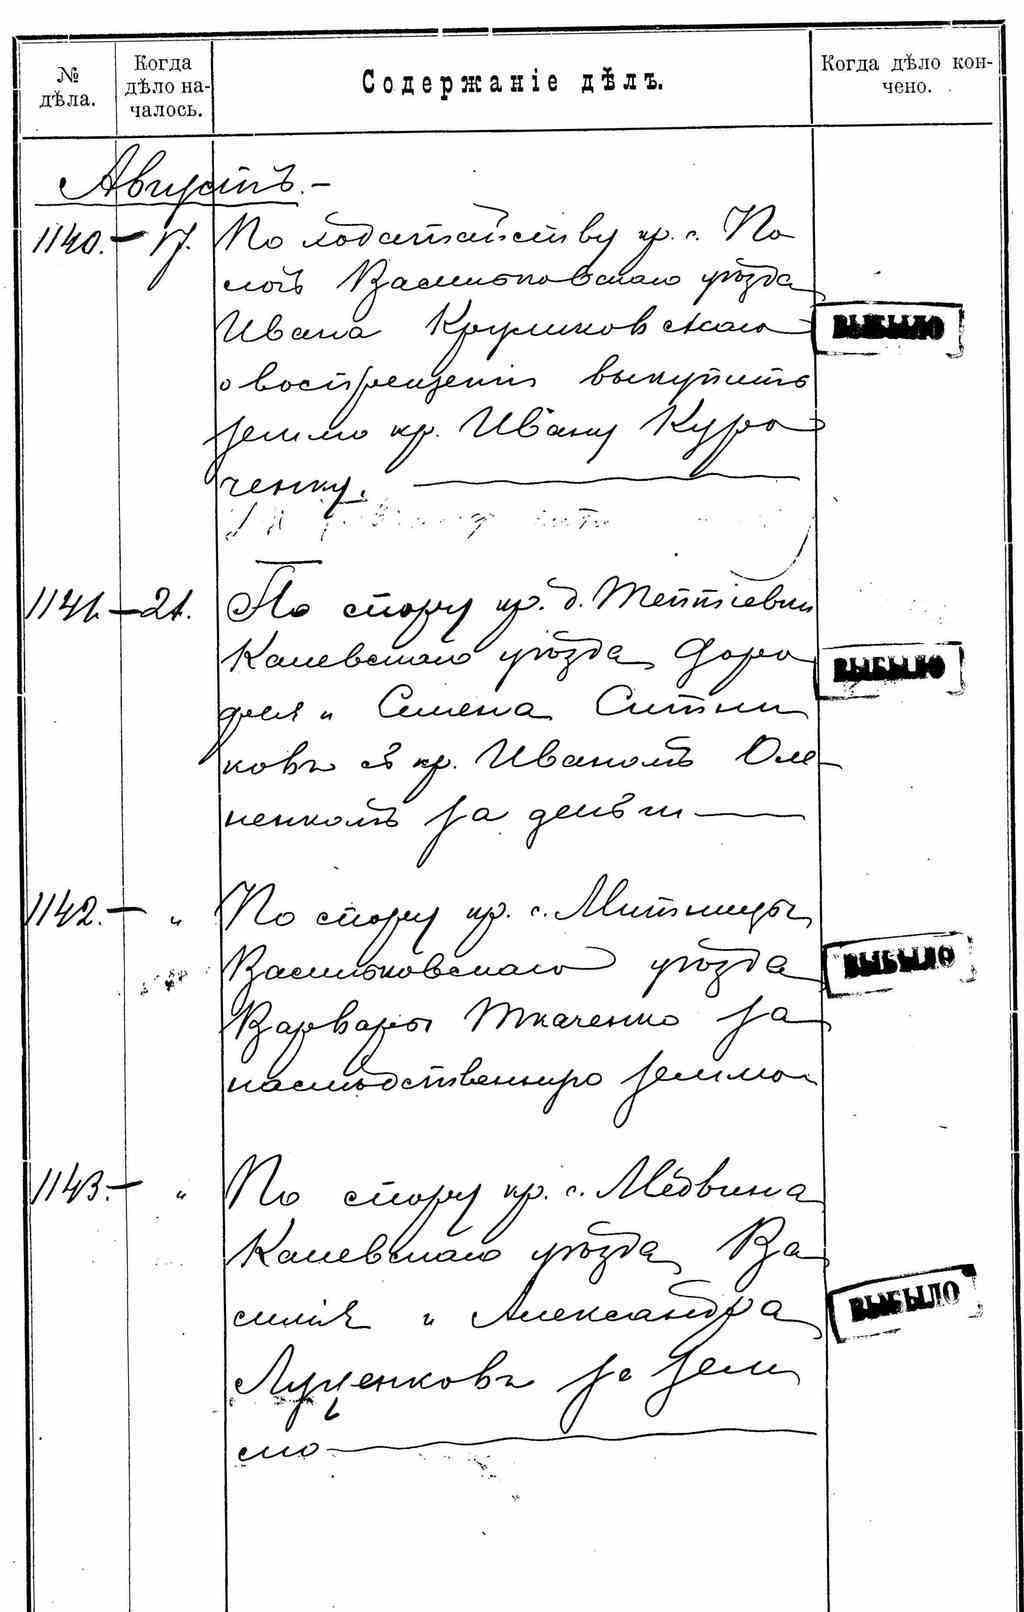 № дѣла.
Когда дѣло на-
чалось.
Содержаніе дѣлъ.
Когда дѣло кон-
чено.
Августъ. –
1140. – 17. По ходатайству кр. с. По
логъ Васильковскаго уѣзда
Ивана Круликовскаго
о воспрещеніи выкупить
землю кр. Ивану Куро
ченку.
ВЫБЫЛО
1141. – 21. По спору кр. д. Тептіевки
Каневскаго уѣзда Доро
фея и Семена Ситни
ковъ съ кр. Иваномъ Оле-
ненкомъ за деньги
ВЫБЫЛО
1142. – „ По спору кр. с. Митницы
Васильковскаго уѣзда
Варвары Ткаченко за
наслѣдственную землю
ВЫБЫЛО
1143. – „ По спору кр. с. Медвина
Каневскаго уѣзда Ва
силія и Александра
Луценковъ за зем
лю
ВЫБЫЛО